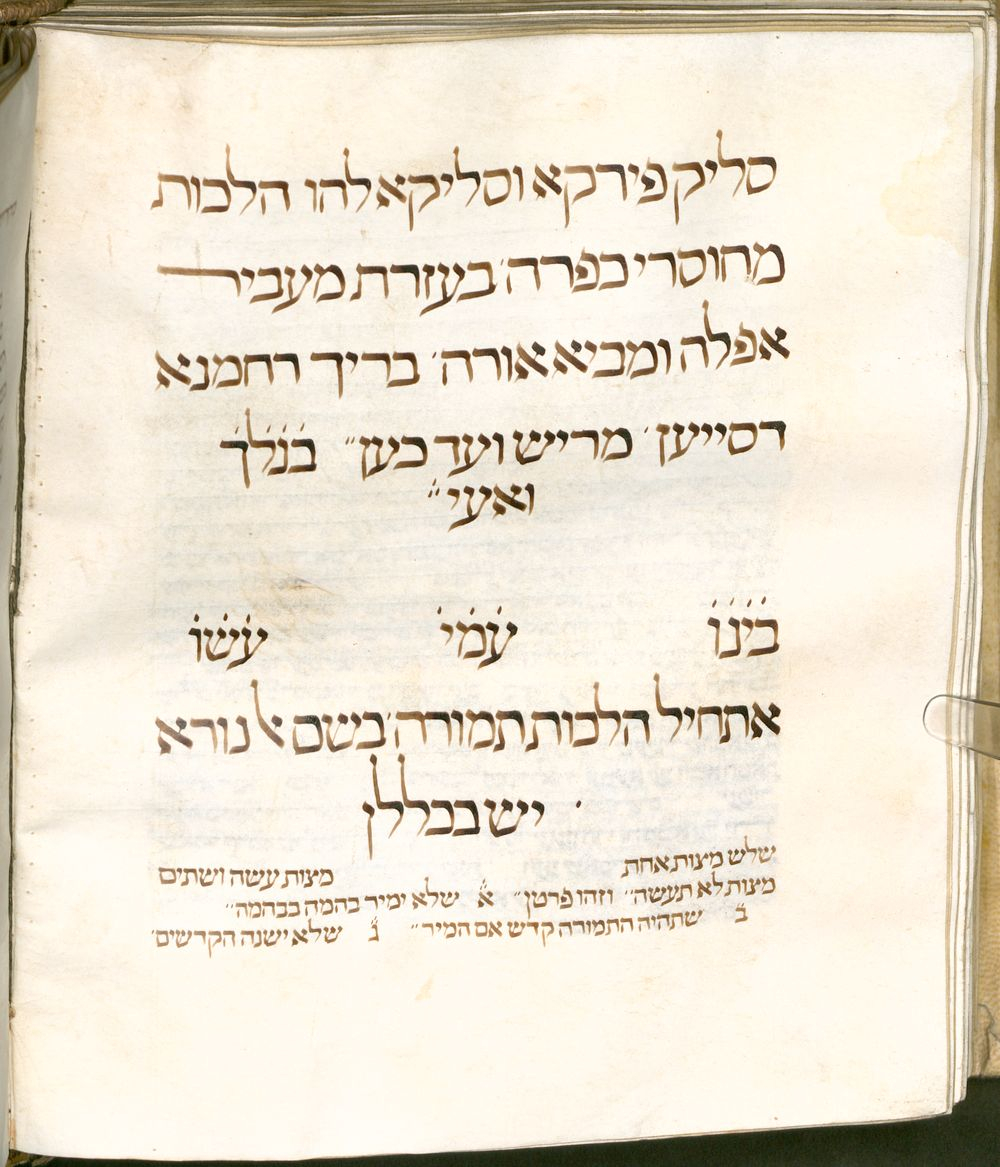 סליק פירקא וסליקא להו הלכות
מחוסרי כפרה׳ בעזרת מעביר
אפלה ומביא אורה׳ בריך רחמנא
דסייען׳ מריש ועד כען״ בנלך
ואעי״
בינו עמי עשו
אתחיל הלכות תמורה׳ בשם אל נורא
יש בכללן
שלש מצות אחת מצות עשה ושתים
מצות לא תעשה״ וזהו פרטן״ א שלא ימיר בהמה בבהמה״
ב שתהיה התמורה קדש אם המיר״ ג שלא ישנה הקדשים׳